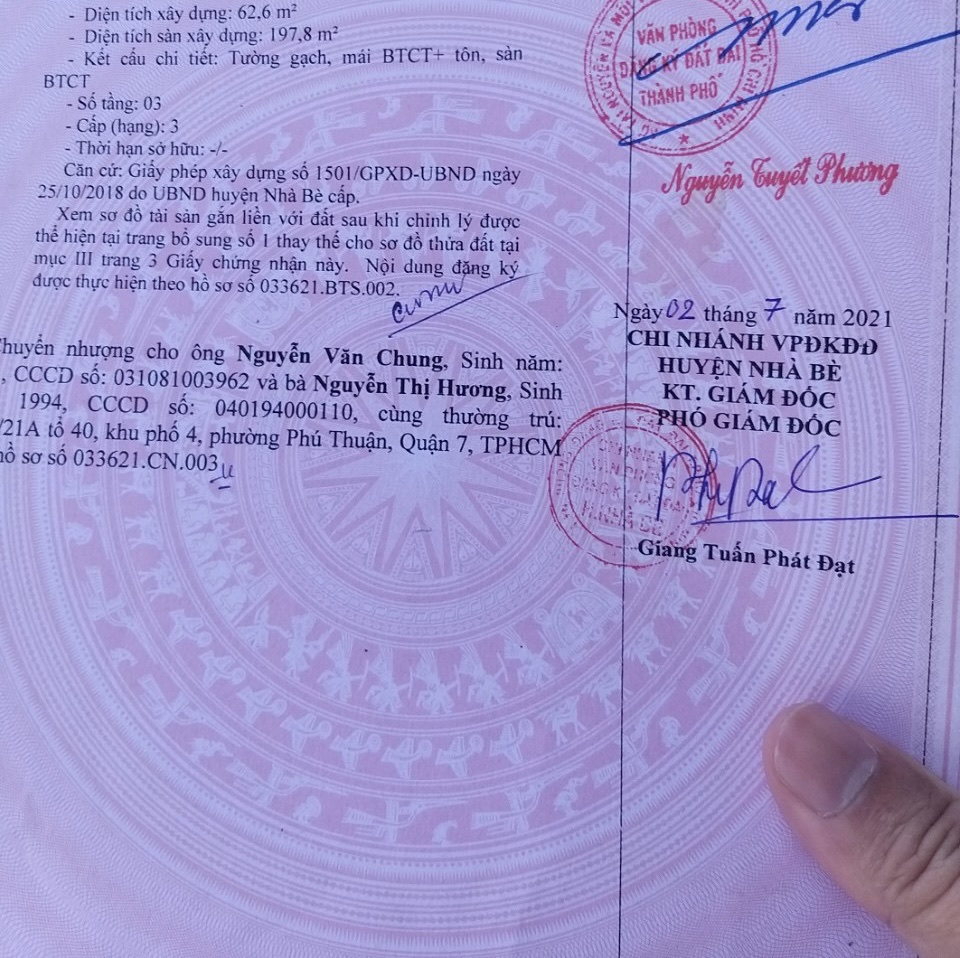 - Diện tích xây dựng: 62,6 m²
- Diện tích sàn xây dựng: 197,8 m²
- Kết cấu chi tiết: Tường gạch, mái BTCT+ tôn, sàn
BTCT
- Số tầng: 03
- Cấp (hạng): 3
- Thời hạn sở hữu: -/-
Căn cứ: Giấy phép xây dựng số 1501/GPXD-UBND ngày
25/10/2018 do UBND huyện Nhà Bè cấp.
Xem sơ đồ tài sản gắn liền với đất sau khi chỉnh lý được
thể hiện tại trang bổ sung số 1 thay thế cho sơ đồ thửa đất tại
mục III trang 3 Giấy chứng nhận này. Nội dung đăng ký
được thực hiện theo hồ sơ số 033621.BTS.002.
VĂN PHÒNG
ĐĂNG KÝ ĐẤT ĐAI
THÀNH PHỐ
Nguyễn Tuyết Phương
Chuyển nhượng cho ông Nguyễn Văn Chung, Sinh năm:
, CCCD số: 031081003962 và bà Nguyễn Thị Hương, Sinh
1994, CCCD số: 040194000110, cùng thường trú:
/21A tổ 40, khu phố 4, phường Phú Thuận, Quận 7, TPHCM
hồ sơ số 033621.CN.003
Ngày 02 tháng 7 năm 2021
CHI NHÁNH VPĐKĐĐ
HUYỆN NHÀ BÈ
KT. GIÁM ĐỐC
PHÓ GIÁM ĐỐC
CHI NHÁNH
VĂN PHÒNG
ĐĂNG KÝ ĐẤT ĐAI
H.NHÀ BÈ
Giang Tuấn Phát Đạt